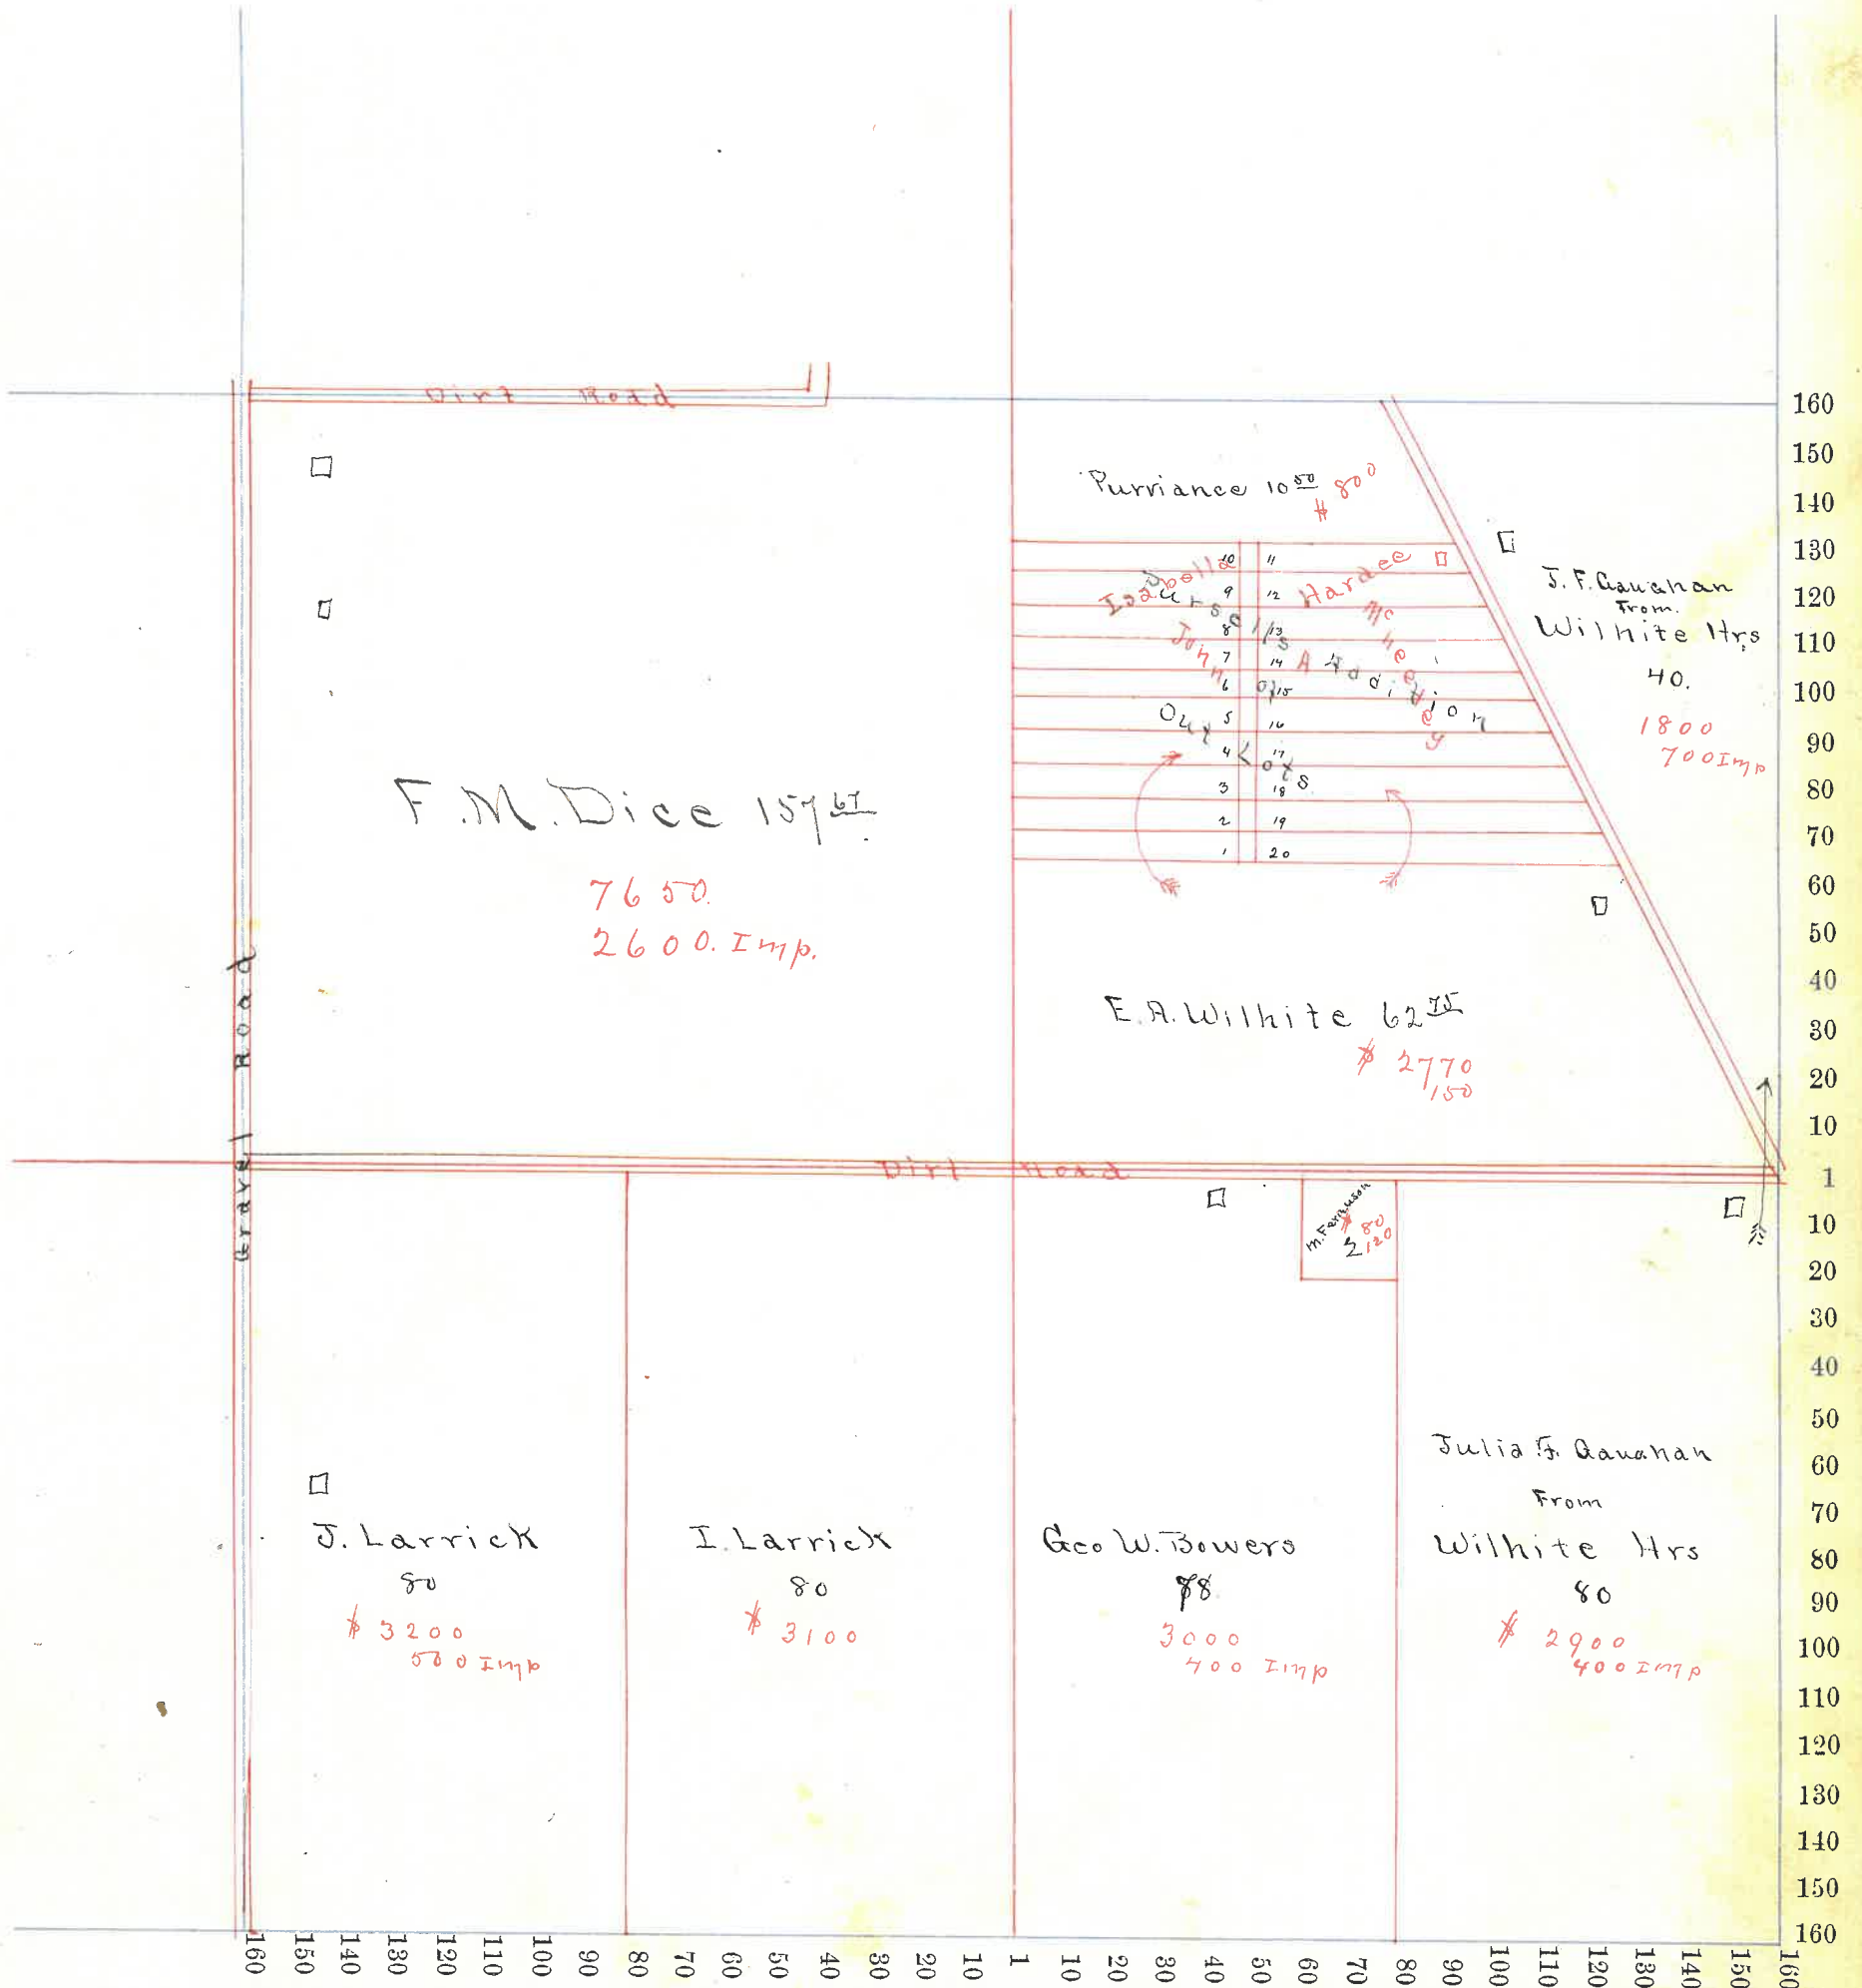 Dirt Road
Purriance 10 50
$ 800
10 11
9 12
8 13
7 14
6 15
5 16
4 17
3 18
2 19
1 20
Isabella Hardee
John A McNeeley
Pursell's Addition
of
Out Lots
J. F. Gaughan
From.
Wilhite Hrs
40.
1800
700 Imp
F. M. Dice 157 67
7650.
2600. Imp.
E. A. Wilhite 62 75
$ 2770
150
Gravel Road
Dirt Road
M. Ferguson
$ 80
2 120
J. Larrick
80
$ 3200
500 Imp
I. Larrick
80
$ 3100
Geo W. Bowers
78
3000
400 Imp
Julia F. Gaughan
From
Wilhite Hrs
80
$ 2900
400 Imp
160
150
140
130
120
110
100
90
80
70
60
50
40
30
20
10
1
10
20
30
40
50
60
70
80
90
100
110
120
130
140
150
160
160 150 140 130 120 110 100 90 80 70 60 50 40 30 20 10 1 10 20 30 40 50 60 70 80 90 100 110 120 130 140 150 160